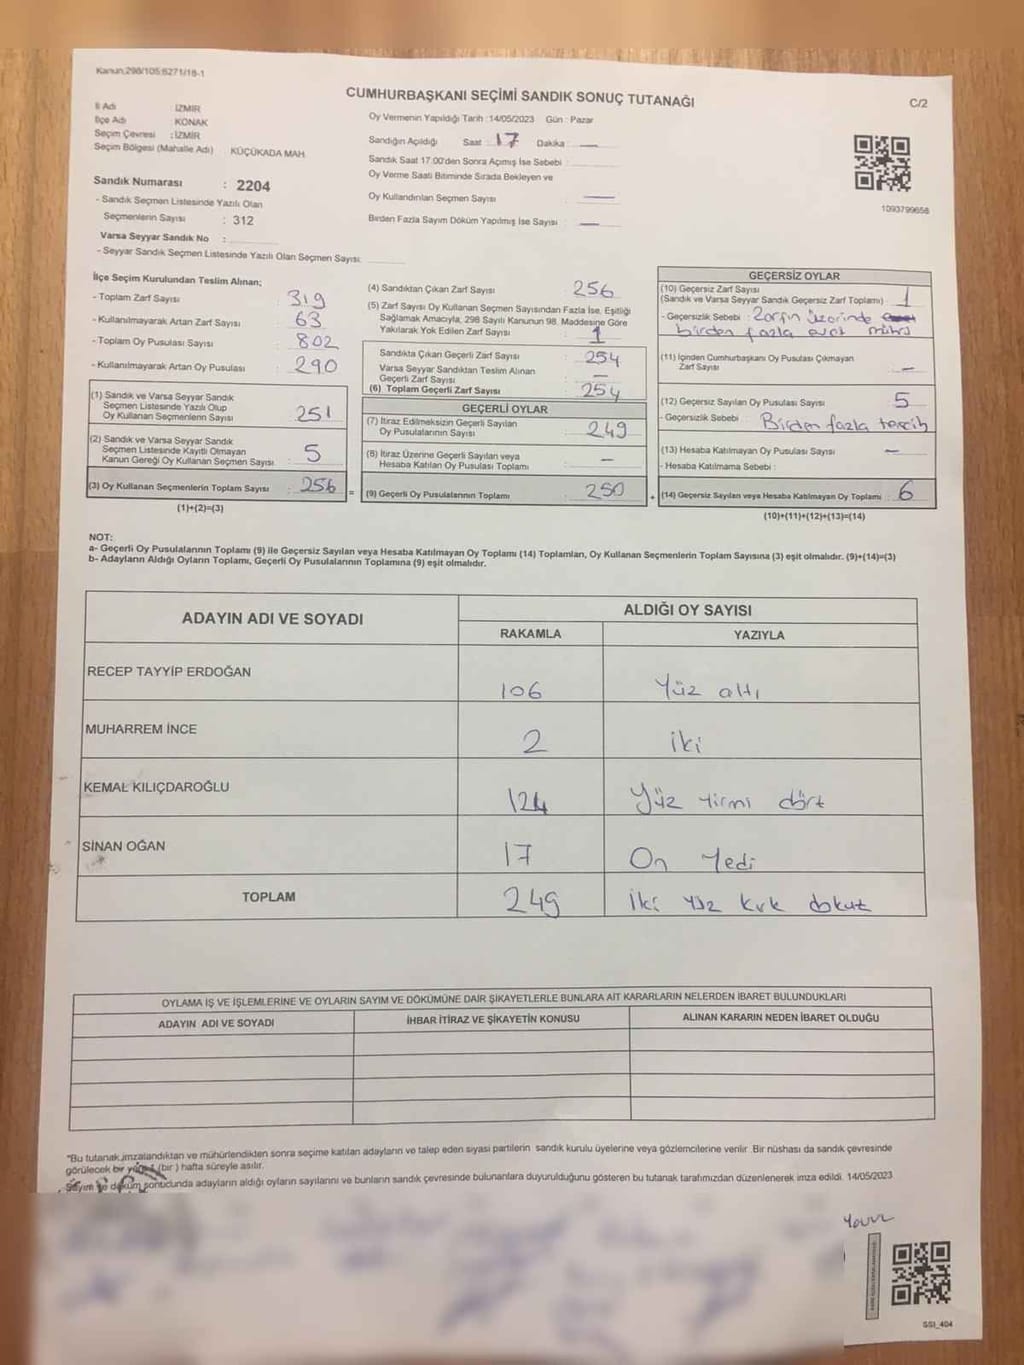 Kanun:298/105;6271/18-1
CUMHURBAŞKANI SEÇİMİ SANDIK SONUÇ TUTANAĞI
C/2
İl Adı : İZMİR
İlçe Adı : KONAK
Seçim Çevresi : İZMİR
Seçim Bölgesi (Mahalle Adı) : KÜÇÜKADA MAH.
Sandık Numarası : 2204
- Sandık Seçmen Listesinde Yazılı Olan
Seçmenlerin Sayısı : 312
Varsa Seyyar Sandık No :
- Seyyar Sandık Seçmen Listesinde Yazılı Olan Seçmen Sayısı:
Oy Vermenin Yapıldığı Tarih : 14/05/2023 Gün : Pazar
Sandığın Açıldığı Saat : 17 Dakika : —
Sandık Saat 17.00'den Sonra Açımış İse Sebebi :
Oy Verme Saati Bitiminde Sırada Bekleyen ve
Oy Kullandırılan Seçmen Sayısı : —
Birden Fazla Sayım Döküm Yapılmış İse Sayısı : —
1093799658
İlçe Seçim Kurulundan Teslim Alınan;
- Toplam Zarf Sayısı : 319
- Kullanılmayarak Artan Zarf Sayısı : 63
- Toplam Oy Pusulası Sayısı : 802
- Kullanılmayarak Artan Oy Pusulası : 290
(1) Sandık ve Varsa Seyyar Sandık
Seçmen Listesinde Yazılı Olup
Oy Kullanan Seçmenlerin Sayısı : 251
(2) Sandık ve Varsa Seyyar Sandık
Seçmen Listesinde Kayıtlı Olmayan
Kanun Gereği Oy Kullanan Seçmen Sayısı : 5
(3) Oy Kullanan Seçmenlerin Toplam Sayısı : 256
(1)+(2)=(3)
(4) Sandıktan Çıkan Zarf Sayısı : 256
(5) Zarf Sayısı Oy Kullanan Seçmen Sayısından Fazla İse, Eşitliği
Sağlamak Amacıyla, 298 Sayılı Kanunun 98. Maddesine Göre
Yakılarak Yok Edilen Zarf Sayısı : 1
Sandıkta Çıkan Geçerli Zarf Sayısı : 254
Varsa Seyyar Sandıktan Teslim Alınan
Geçerli Zarf Sayısı : —
(6) Toplam Geçerli Zarf Sayısı : 254
GEÇERLİ OYLAR
(7) İtiraz Edilmeksizin Geçerli Sayılan
Oy Pusulalarının Sayısı : 249
(8) İtiraz Üzerine Geçerli Sayılan veya
Hesaba Katılan Oy Pusulası Toplamı : —
= (9) Geçerli Oy Pusulalarının Toplamı : 250 +
GEÇERSİZ OYLAR
(10) Geçersiz Zarf Sayısı
(Sandık ve Varsa Seyyar Sandık Geçersiz Zarf Toplamı) : 1
- Geçersizlik Sebebi : Zarfın üzerinde
birden fazla evet mührü
(11) İçinden Cumhurbaşkanı Oy Pusulası Çıkmayan
Zarf Sayısı : —
(12) Geçersiz Sayılan Oy Pusulası Sayısı : 5
- Geçersizlik Sebebi : Birden fazla tercih
(13) Hesaba Katılmayan Oy Pusulası Sayısı : —
- Hesaba Katılmama Sebebi :
(14) Geçersiz Sayılan veya Hesaba Katılmayan Oy Toplamı : 6
(10)+(11)+(12)+(13)=(14)
NOT:
a- Geçerli Oy Pusulalarının Toplamı (9) ile Geçersiz Sayılan veya Hesaba Katılmayan Oy Toplamı (14) Toplamları, Oy Kullanan Seçmenlerin Toplam Sayısına (3) eşit olmalıdır. (9)+(14)=(3)
b- Adayların Aldığı Oyların Toplamı, Geçerli Oy Pusulalarının Toplamına (9) eşit olmalıdır.
ADAYIN ADI VE SOYADI
ALDIĞI OY SAYISI
RAKAMLA YAZIYLA
RECEP TAYYİP ERDOĞAN 106 Yüz altı
MUHARREM İNCE 2 iki
KEMAL KILIÇDAROĞLU 124 Yüz yirmi dört
SİNAN OĞAN 17 On Yedi
TOPLAM 249 İki yüz kırk dokuz
OYLAMA İŞ VE İŞLEMLERİNE VE OYLARIN SAYIM VE DÖKÜMÜNE DAİR ŞİKAYETLERLE BUNLARA AİT KARARLARIN NELERDEN İBARET BULUNDUKLARI
ADAYIN ADI VE SOYADI İHBAR İTİRAZ VE ŞİKAYETİN KONUSU ALINAN KARARIN NEDEN İBARET OLDUĞU
"Bu tutanak,imzalandıktan ve mühürlendikten sonra seçime katılan adayların ve talep eden siyasi partilerin sandık kurulu üyelerine veya gözlemcilerine verilir. Bir nüshası da sandık çevresinde
görülecek bir yere 1 (bir ) hafta süreyle asılır.
Sayım ve döküm sonucunda adayların aldığı oyların sayılarını ve bunların sandık çevresinde bulunanlara duyurulduğunu gösteren bu tutanak tarafımızdan düzenlenerek imza edildi. 14/05/2023
SSI_404